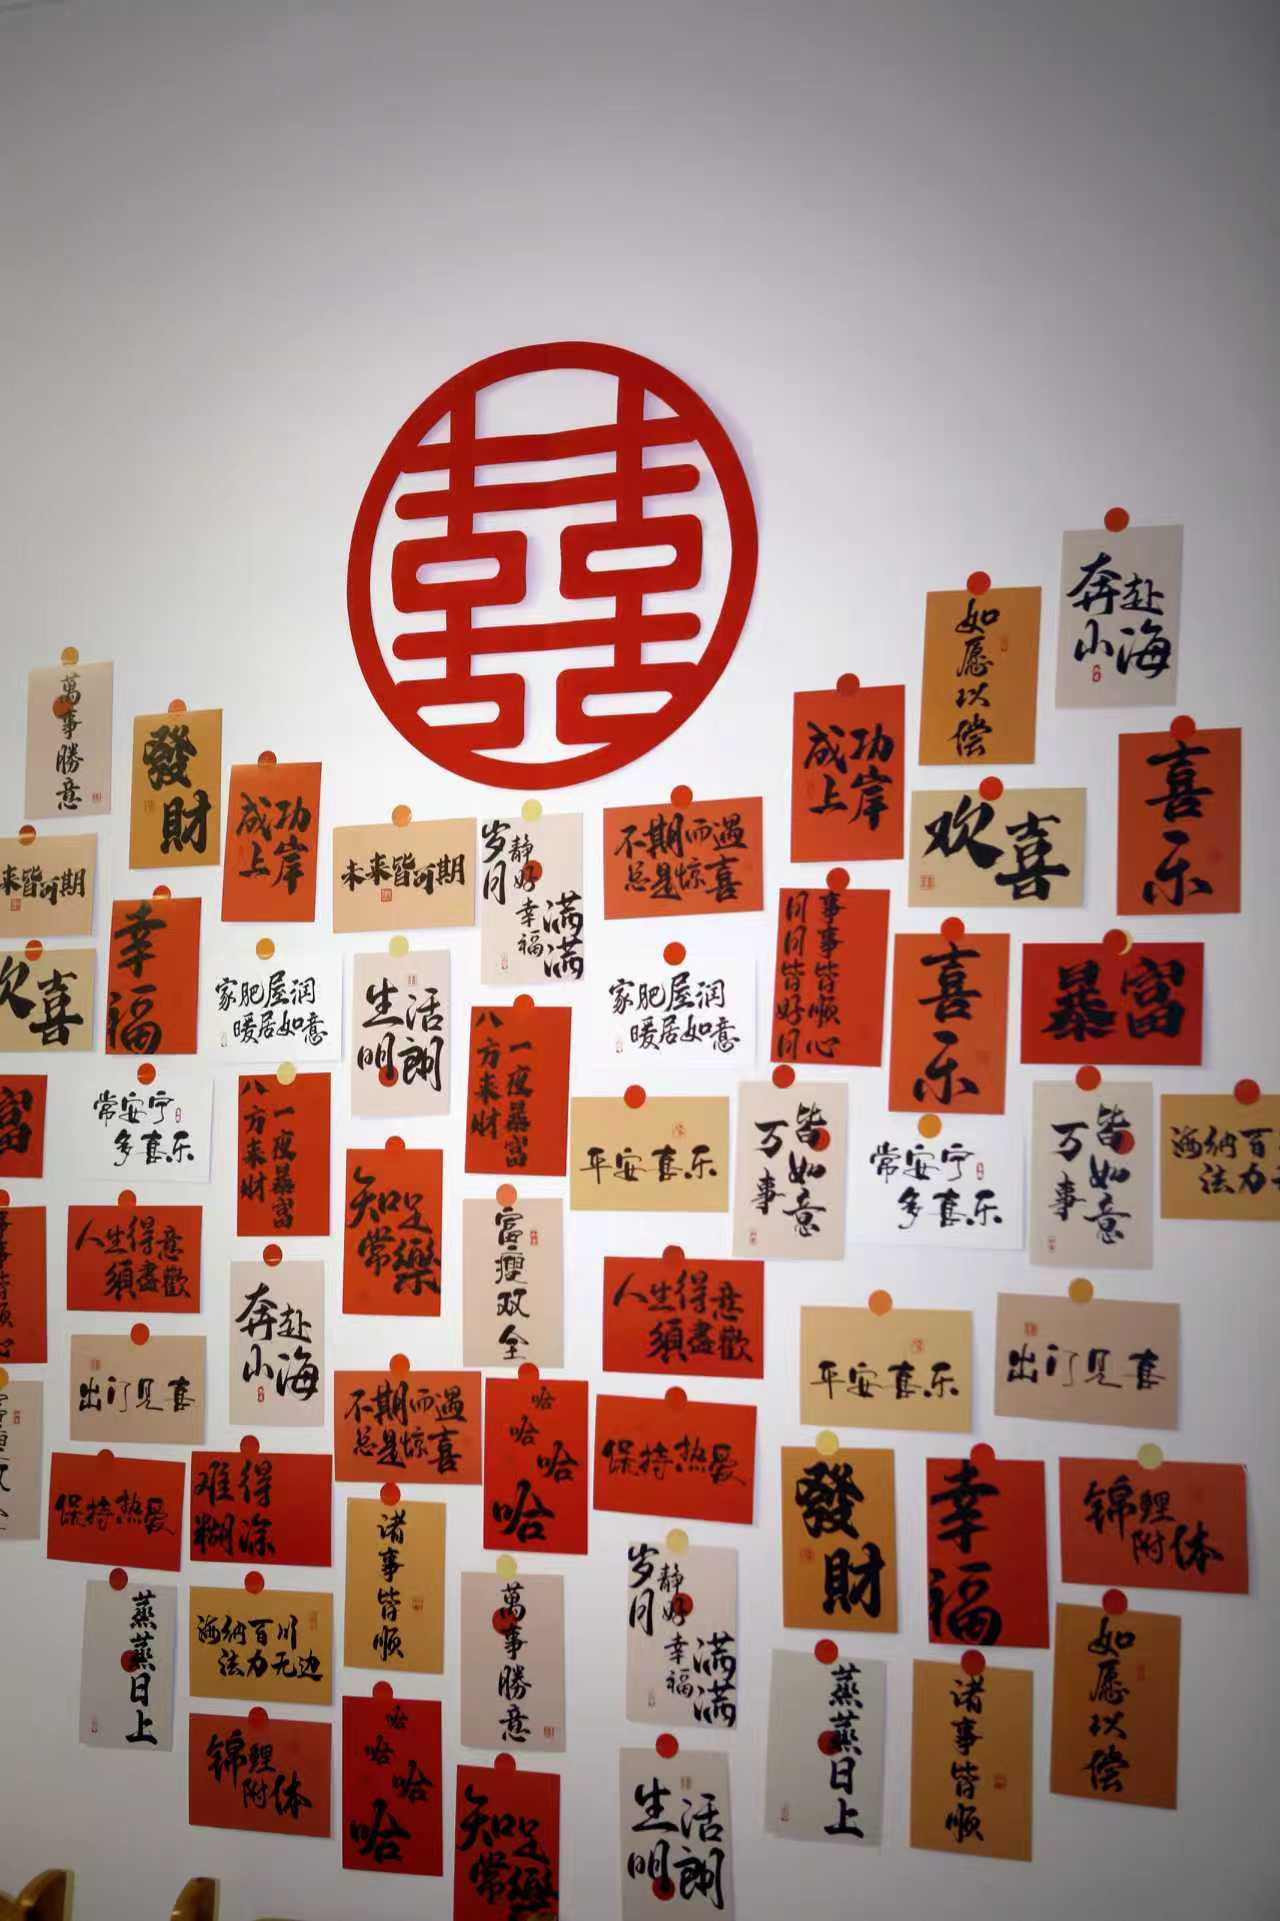 囍
奔赴
山海
如愿以偿
萬事勝意
成功
上岸
發財
喜乐
成功
上岸
欢喜
不期而遇
总是惊喜
未来皆可期
岁月静好
幸福满满
未来皆可期
事事皆顺心
同同皆好同
幸福
喜乐
暴富
欢喜
家肥屋润
暖居如意
生活
明朗
家肥屋润
暖居如意
一夜暴富
八方来财
常安宁
多喜乐
一夜暴富
八方来财
平安喜乐
万事
皆如意
常安宁
多喜乐
万事
皆如意
海纳百
法力
富
知足
常樂
富瘦双全
人生得意
須盡歡
人生得意
須盡歡
奔赴
山海
平安喜乐
出门见喜
事事皆顺心
出门见喜
不期而遇
总是惊喜
哈
哈
哈
哈
保持热爱
保持热爱
难得
糊涂
發財
幸福
锦鲤
附体
诸事皆顺
岁月静好
幸福满满
萬事勝意
蒸蒸日上
海纳百川
法力无边
如愿以偿
蒸蒸日上
诸事皆顺
锦鲤
附体
哈
哈
哈
哈
知足
常樂
生活
明朗